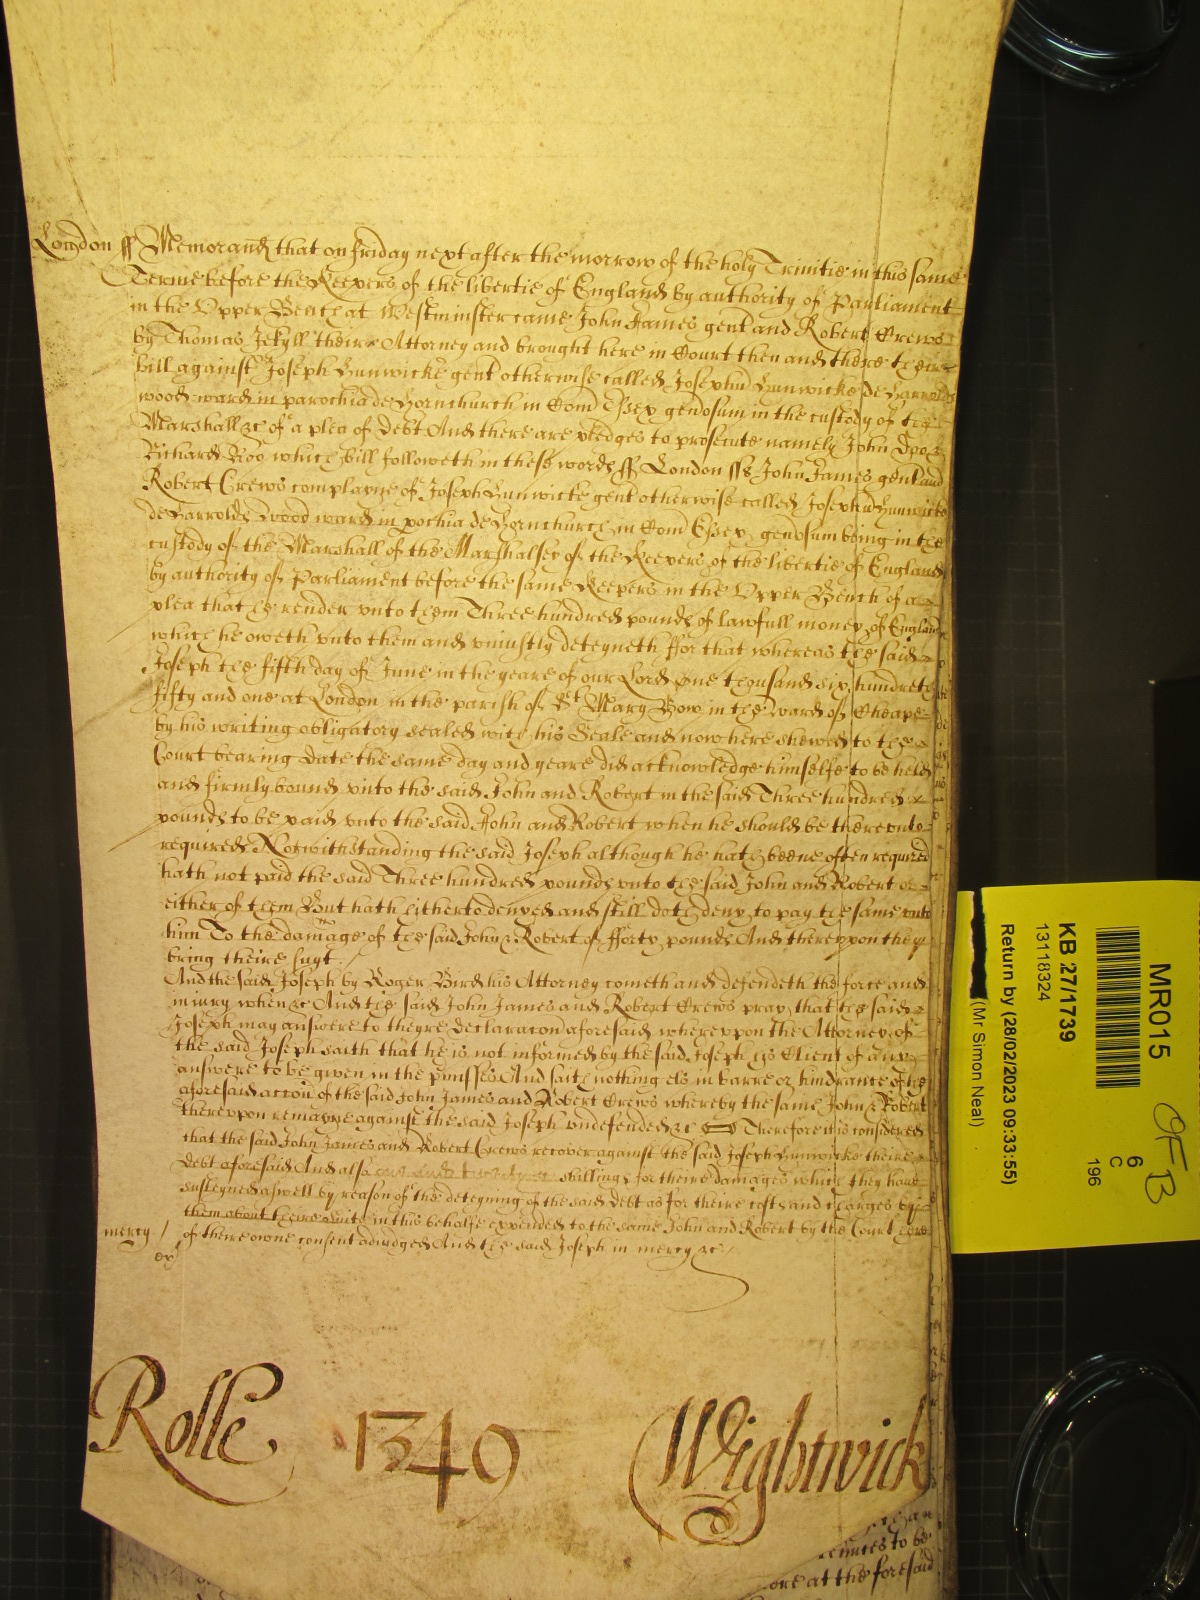 London ss Memorand that on friday next after the morrow of the holy Trinitie in this same
Terme before the Keepers of the libertie of England by authority of Parliament
in the Upper Bench at Westminster came John James gent and Robert Crewes
by Thomas Jekyll their Attorney and brought here in Court then and there theire
bill against Joseph Hunwicke gent otherwise called Josephu Hunwicke de Harrolds
wood ward in parochia de Hornchurch in Com Essex genosum in the custody of the
Marshall &c of a plea of debt And there are pledges to prosecute namely John Doo &
Richard Roo which bill followeth in these words ss London ss John James gent and
Robert Crews complayne of Joseph Hunwicke gent otherwise called Josephu Hunwicke
de Harrolds Wood ward in pochia de Hornchurch in Com Essex genosum being in the
custody of the Marshall of the Marshalsey of the Keepers of the libertie of England
by authority of Parliament before the same Keepers in the Upper Bench of a
plea that he render vnto them Three hundred pounds of lawfull money of England
which he oweth vnto them and vniustly deteyneth ffor that whereas the said
Joseph the fifth day of June in the yeare of our Lord One thousand six hundreth
fifty and one at London in the parish of St Mary Bow in the ward of Cheape
by his writing obligatory sealed with his Seale and now here shewed to the
Court bearing date the same day and yeare did acknowledge himselfe to be held
and firmly bound vnto the said John and Robert in the said Three hundred
pounds to be paid vnto the said John and Robert when he should be therevnto
required Notwithstanding the said Joseph although he hath beene often required
hath not paid the said Three hundred pounds vnto the said John and Robert or
either of them But hath hitherto denyed and still doth deny to pay the same vnto
him To the damage of the said John & Robert of fforty pounds And therevpon they
bring theire suyt
And the said Joseph by Roger Bird his Attorney cometh and defendeth the force and
iniury when &c And the said John James and Robert Crews pray that the said
Joseph may answere to theyre declaracon aforesaid wherevpon the Attorney of
the said Joseph saith that he is not informed by the said Joseph his Client of any
answere to be given in the pmisses And saith nothing els in barre or hindrance of the
aforesaid accion of the said John James and Robert Crews whereby the same John & Robert
therevpon remayne against the said Joseph vndefended &c Therefore it is considered
that the said John James and Robert Crews recover against the said Joseph Hunwicke theire
debt aforesaid And also shillings for theire damages which they have
susteyned aswell by reason of the deteyning of the said debt as for theire costs and charges by
them about theire suite in this behalfe expended to the same John and Robert by the Court here
mercy / of there owne consent adiudged And the said Joseph in mercy &c /
Rolle 1340 Wightwick
to be
ore at the foresaid
MR015
KB 27/1739
13118324
Return by (28/02/2023 09:33:55)
(Mr Simon Neal)
6
C
196
OF B